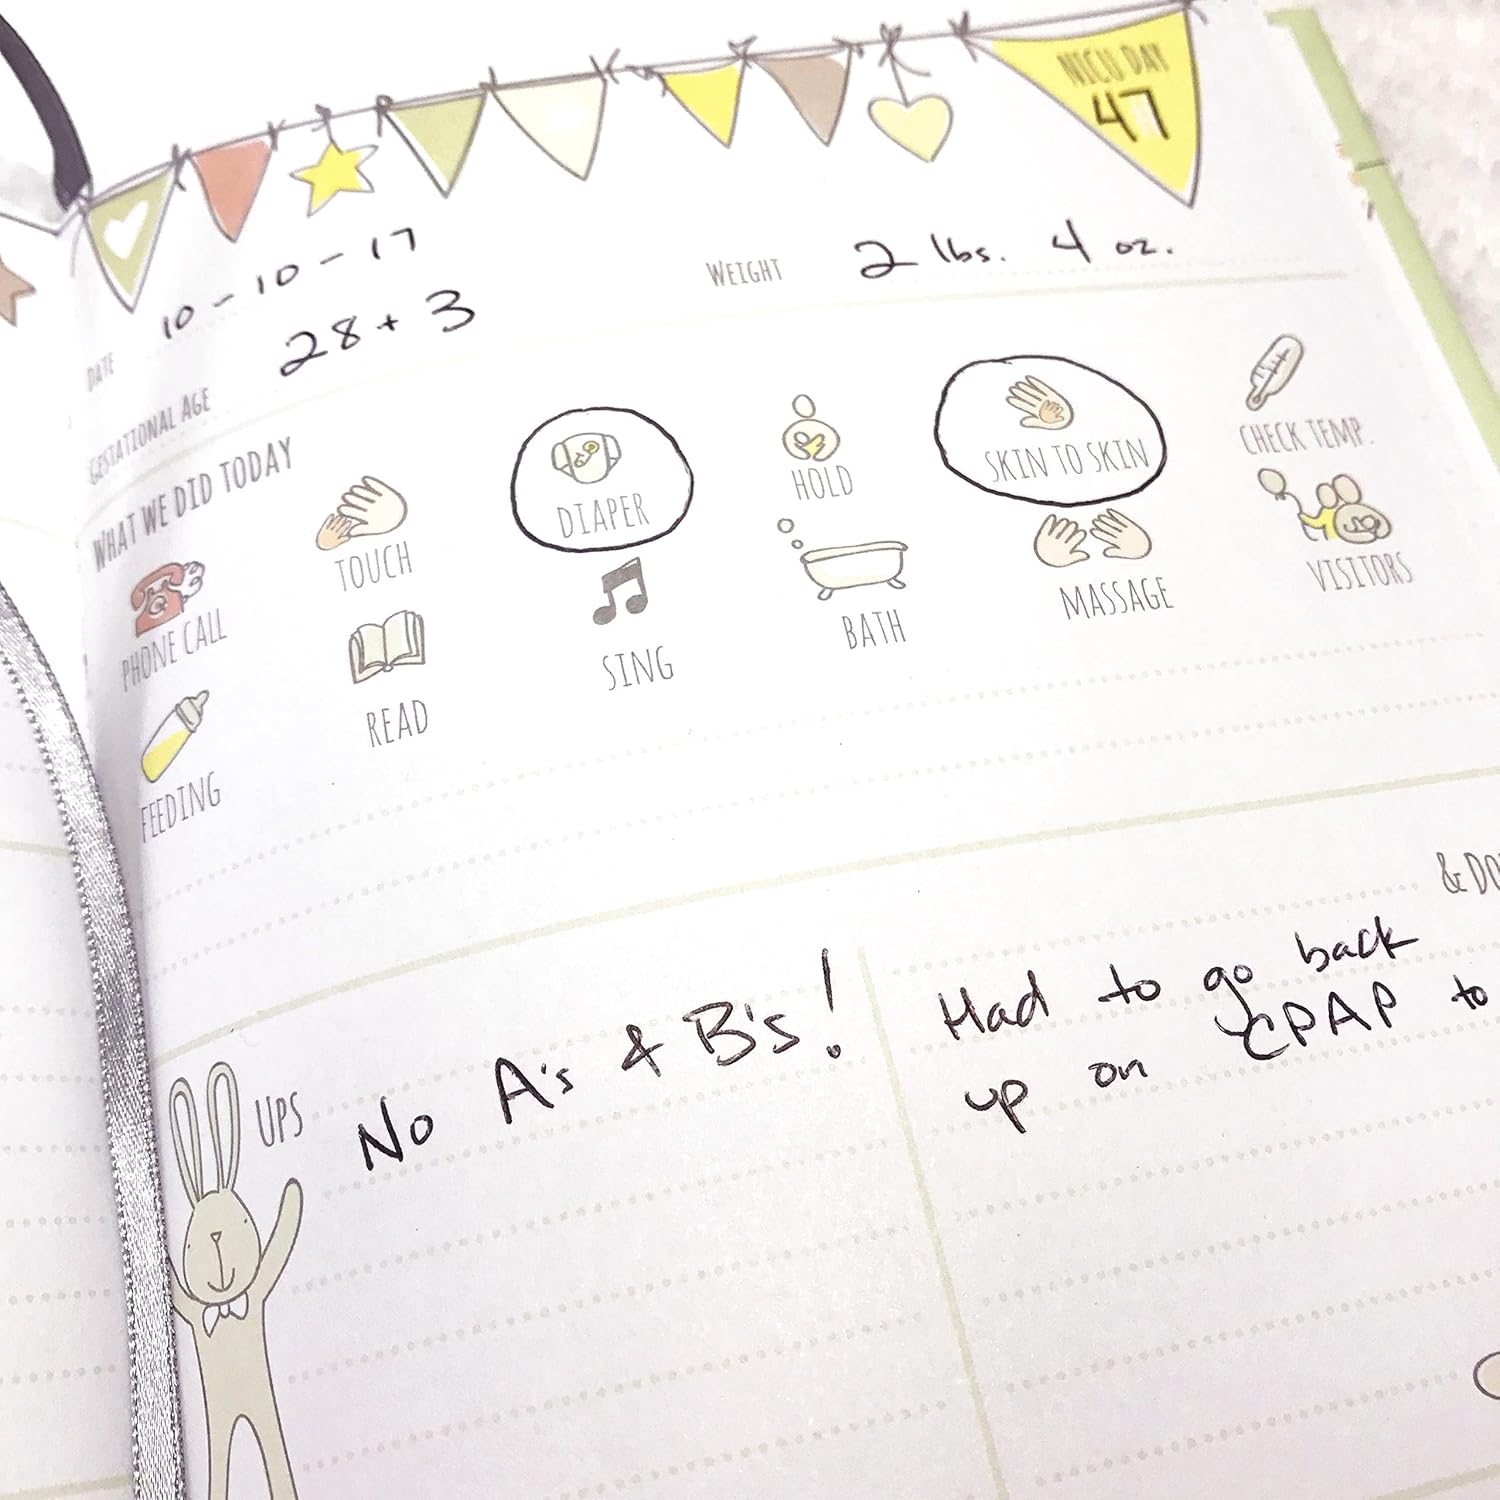 NICU DAY
47
DATE 10-10-17
WEIGHT 2 lbs. 4 oz.
GESTATIONAL AGE 28+3
WHAT WE DID TODAY
PHONE CALL
TOUCH
DIAPER
HOLD
SKIN TO SKIN
CHECK TEMP.
FEEDING
READ
SING
BATH
MASSAGE
VISITORS
UPS
No A's & B's!
& DO
Had to go back
up on CPAP to